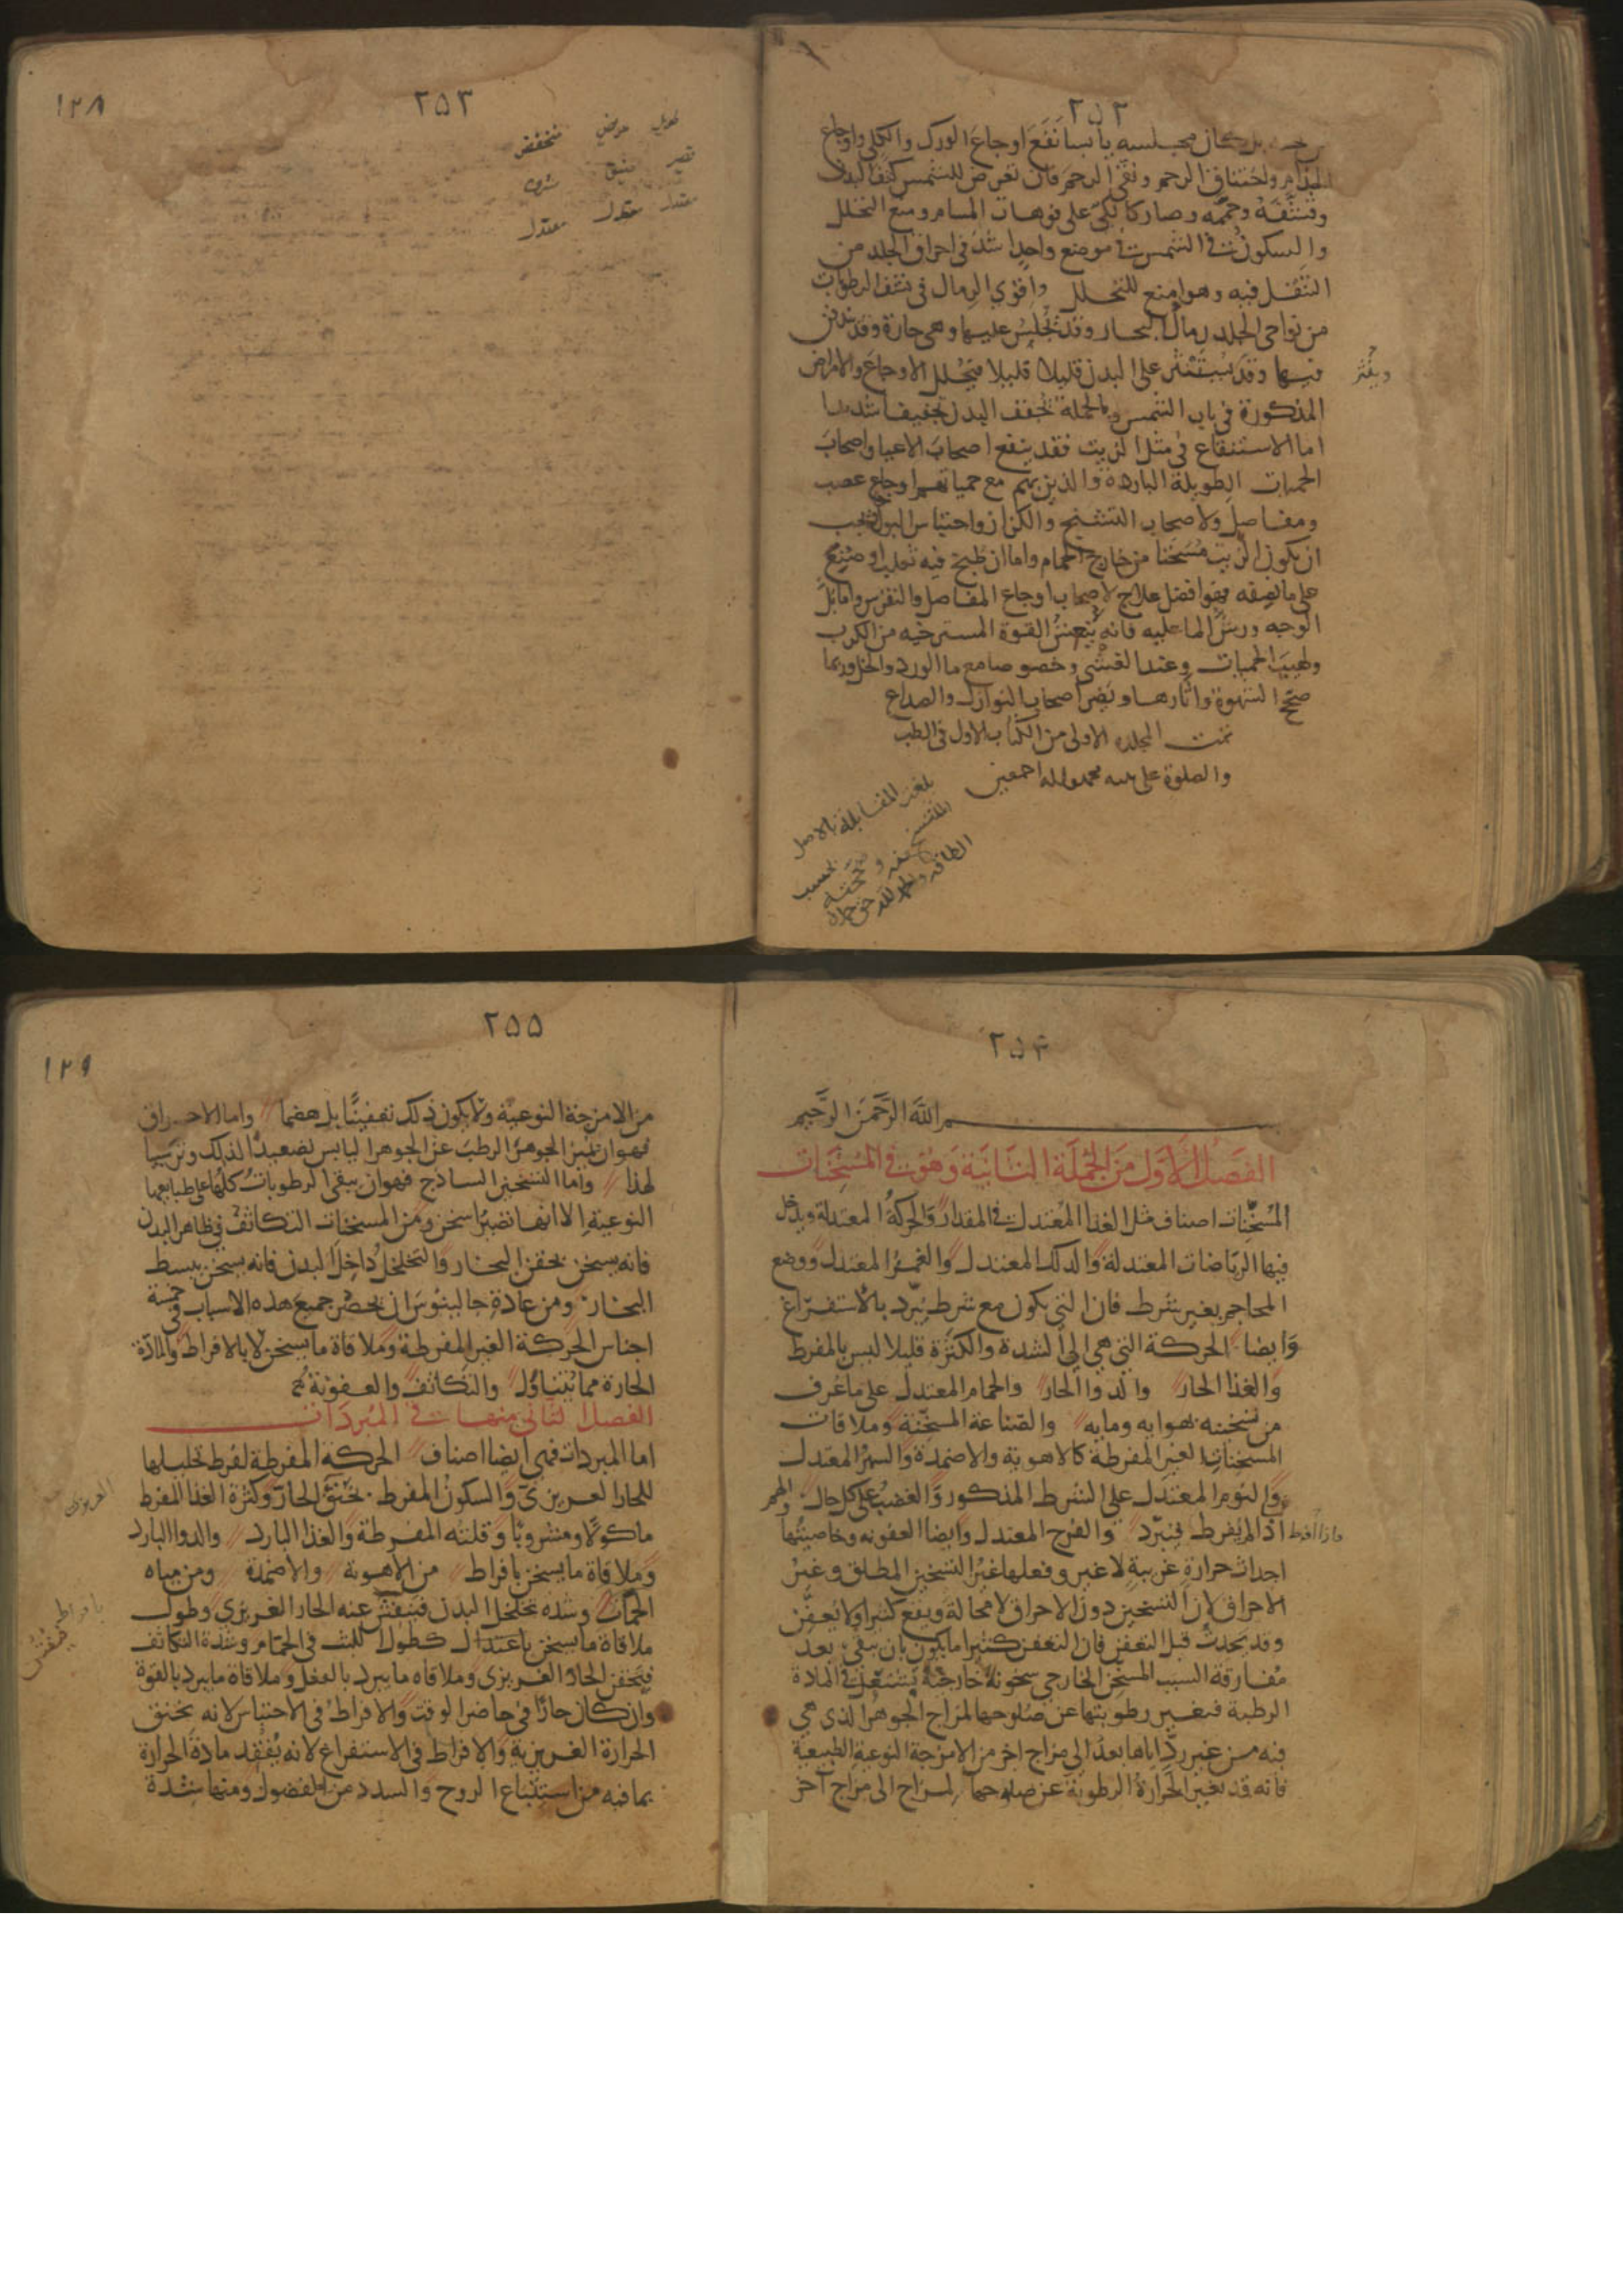 ٢٥٢
بل كان مجلسه يابسا نفع اوجاع الورك والكلى واوجاع
الجذام واختناق الرحم ونقى الرحم فان تعرض للشمس كثف البدن
وقشفه وحممه وصار كالكى على فوهات المسام ومنع التحلل
والسكون فى الشمس فى موضع واحد اشد فى احراق الجلد من
التنقل فيه وهو امنع للتحلل واقوى الرمال فى نشف الرطوبات
من نواحى الجلد رمال البحار وقد يجلس عليها وهى حارة وقد يندفن
فيها وقد ينثر على البدن قليلا قليلا فيحلل الاوجاع والامراض
المذكورة فى باب الشمس وبالجملة يجفف البدن تجفيفا شديدا
اما الاستنقاع فى مثل الزيت فقد ينفع اصحاب الاعيا واصحاب
الحميات الطويلة الباردة والذين بهم مع حمياتهم اوجاع عصب
ومفاصل ولاصحاب التشنج والكزاز واحتباس البول ويجب
ان يكون الزيت مسخنا من خارج الحمام واما ان طبخ فيه ثعلب او ضبع
على ما نصفه فهو افضل علاج لاصحاب اوجاع المفاصل والنقرس واما بل
الوجه ورش الما عليه فانه ينعش القوة المسترخيه من الكرب
ولهيب الحميات وعند الغشى وخصوصا مع ما الورد والخل وربما
صحح الشهوة واثارها ويضر اصحاب النوازل والصداع
تمت المجلده الاولى من الكتاب الاول فى الطب
والصلوة على نبيه محمد واله اجمعين
بلغت المقابلة بالاصل
المنتسخ منه وصححته بحسب
الطاقة والحمد لله حق حمده
٢٥٣
١٢٨
طويل عريض منخفض
قصير ضيق مشرف
معتدل معتدل معتدل
٢٥٤
بسم الله الرحمن الرحيم
الفصل الاول من الجملة الثانية وهو فى المسخنات
المسخنات اصناف مثل الغذا المعتدل فى المقدار والحركة المعتدلة ويدخل
فيها الرياضات المعتدلة والدلك المعتدل والغمز المعتدل ووضع
المحاجم بغير شرط فان التى يكون مع شرط يبرد بالاستفراغ
وايضا الحركة التى هى الى الشدة والكثرة قليلا ليس بالمفرط
والغذا الحار والدوا الحار والحمام المعتدل على ما عرف
من تسخينه بهوايه ومايه والصناعة المسخنة وملاقات
المسخنات الغير المفرطة كالاهوية والاضمدة والسهر المعتدل
والنوم المعتدل على الشرط المذكور والغضب على كل حال والهم
اذا لم يفرط فيبرد والفرح المعتدل وايضا العفونه وخاصيتها
احداث حرارة غريبة لا غير وفعلها غير التسخين المطلق وغير
الاحراق لان التسخين دون الاحراق لا محالة ويقع كثيرا ولا يعفن
وقد يحدث قبل التعفن فان التعفن كثيرا ما يكون بان يبقى بعد
مفارقة السبب المسخن الخارجى سخونة خارجية يشتعل فى المادة
الرطبة فيغير رطوبتها عن صلوحها لمزاج الجوهر الذى هى
فيه من غير رد اياها بعد الى مزاج اخر من الامزجة النوعية الطبيعية
فانه قد يغير الحرارة الرطوبة عن صلاحها لمزاج الى مزاج آخر
٢٥٥
١٢٩
من الامزجة النوعية ولا يكون ذلك تعفينا بل هضما واما الاحراق
فهو ان يميز الجوهر الرطب عن الجوهر اليابس تصعيدا لذلك وترسيبا
لهذا واما التسخين الساذج فهو ان يبقى الرطوبات كلها على طبايعها
النوعية الا انها تصير اسخن ومن المسخنات التكاثف فى ظاهر البدن
فانه يسخن بحقن البخار والتخلخل داخل البدن فانه يسخن ببسط
البخار ومن عادة جالينوس ان يحصر جميع هذه الاسباب فى خمسة
اجناس الحركة الغير المفرطة وملاقاة ما يسخن لا بالافراط والمادة
الحارة مما يتناول والتكاثف والعفونة
الفصل الثانى منها فى المبردات
اما المبردات فهى ايضا اصناف الحركة المفرطة لفرط تحليلها
للحار الغريزى والسكون المفرط بخنق الحار وكثرة الغذا المفرط
ماكولا ومشروبا وقلته المفرطة والغذا البارد والدوا البارد
وملاقاة ما يسخن بافراط من الاهوية والاضمدة ومن مياه
الحمآت وشده تخلخل البدن فينفش عنه الحار الغريزى وطول
ملاقاة ما يسخن باعتدال كطول اللبث فى الحمام وشدة التكاثف
فيحقن الحار الغريزى وملاقاه ما يبرد بالفعل وملاقاة ما يبرد بالقوة
وان كان حارا فى حاضر الوقت والافراط فى الاحتباس لانه يخنق
الحرارة الغريزية والافراط فى الاستفراغ لانه يفقد مادة الحرارة
بما فيه من استتباع الروح والسدد من الفضول ومنها شدة